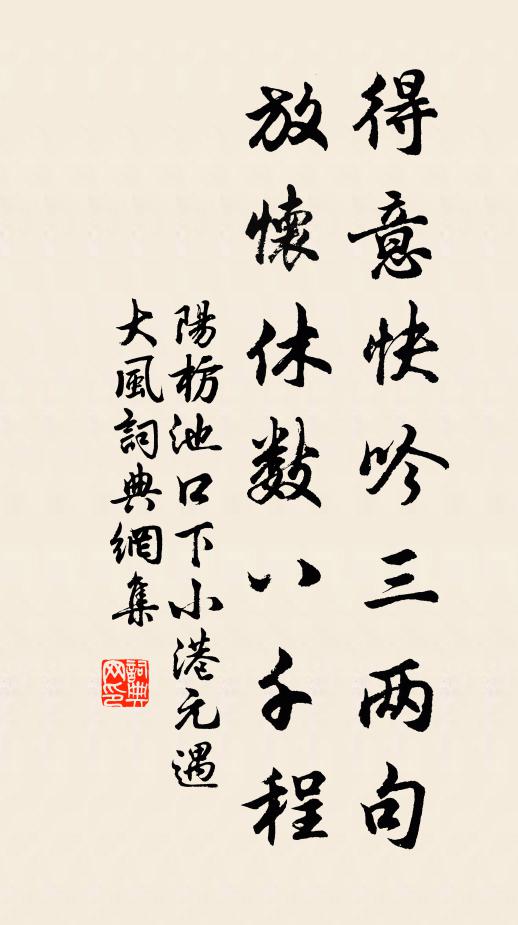 得意快吟三两句
放懷休數八千程
陽枋池口下小港元遇
大風詞典網集
詞典網印